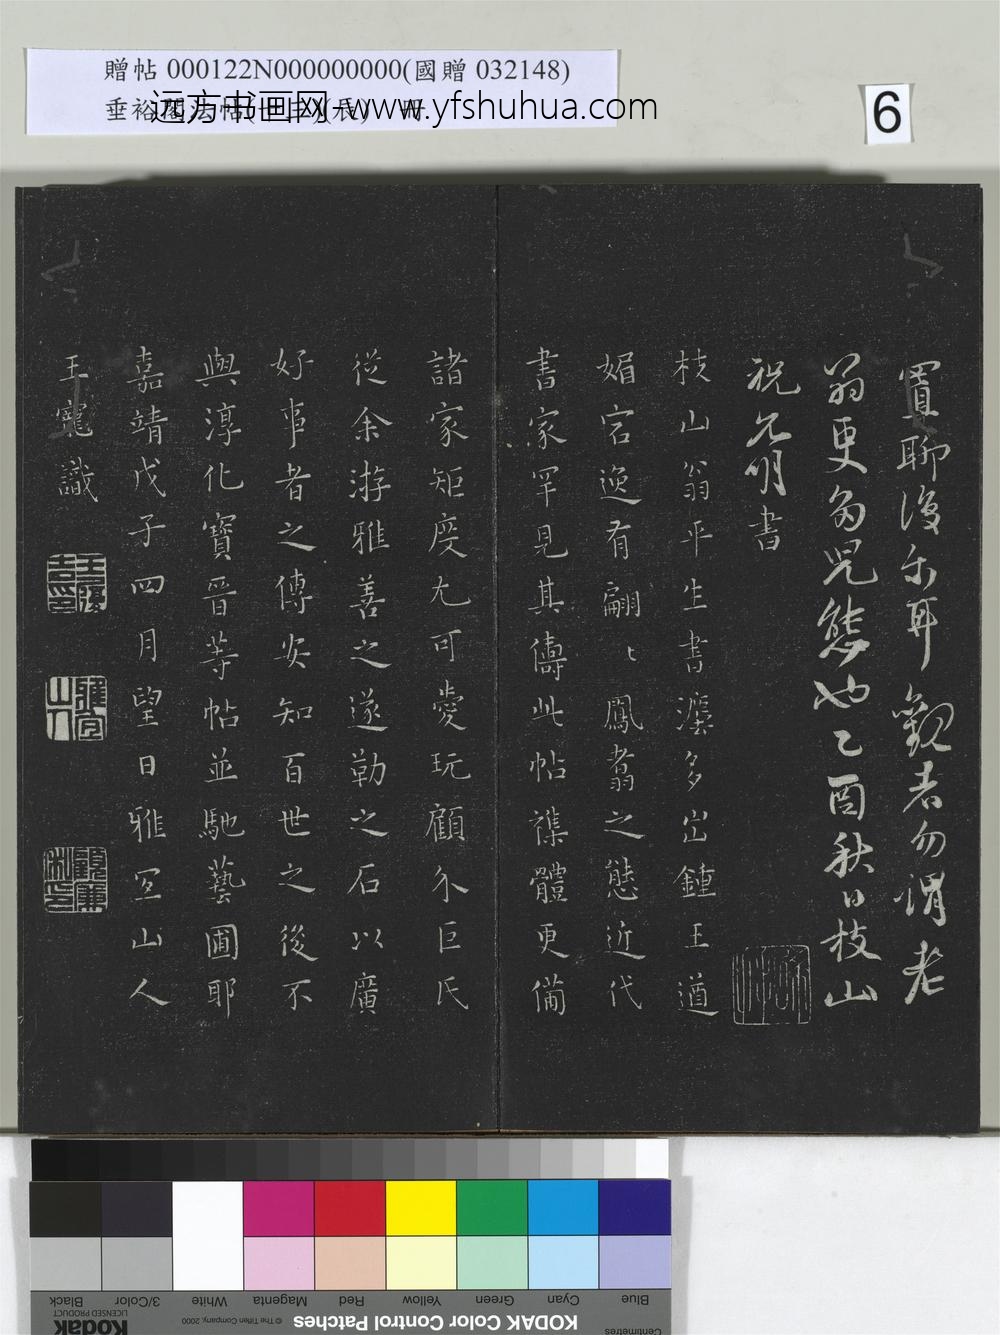 贈帖 000122N000000000(國贈 032148)
垂裕閣法帖
远方书画网-www.yfshuhua.com
6
聊復尔耳觀者勿謂老
翁更多兒態也乙酉秋日枝山
祝允明書
枝山翁平生書灋多出鍾王遒
媚宕逸有翩〻鳳翥之態近代
書家罕見其儔此帖襍體更備
諸家矩度尤可愛玩顧氏
從余游雅善之遂勒之石以廣
好事者之傳安知百世之後不
與淳化寶晉等帖並馳藝圃耶
嘉靖戊子四月望日雅宜山人
王寵識
王履吉印
雅宜山人
Blue
Cyan
Green
Yellow
Red
Magenta
White
3/Color
Black
Centimetres
KODAK Color Control Patches
© The Tiffen Company, 2000
Kodak
LICENSED PRODUCT